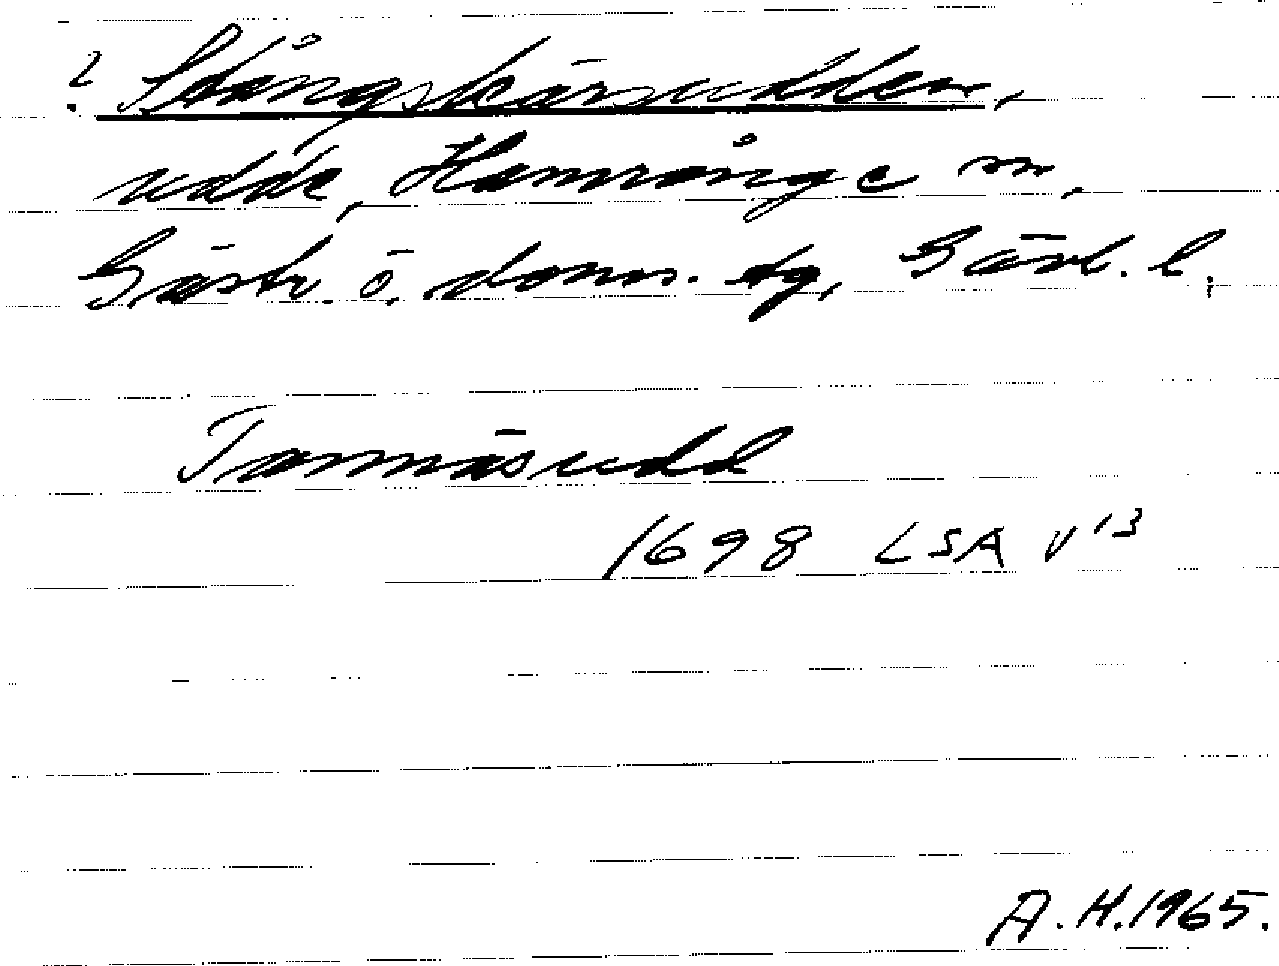 ? Stångskärsudden,
udde, Hamrånge sn,
Gästr. ö. doms. tg, Gävl. l.
Tarmäsudd
1698 LSA V 13
A. H. 1965.